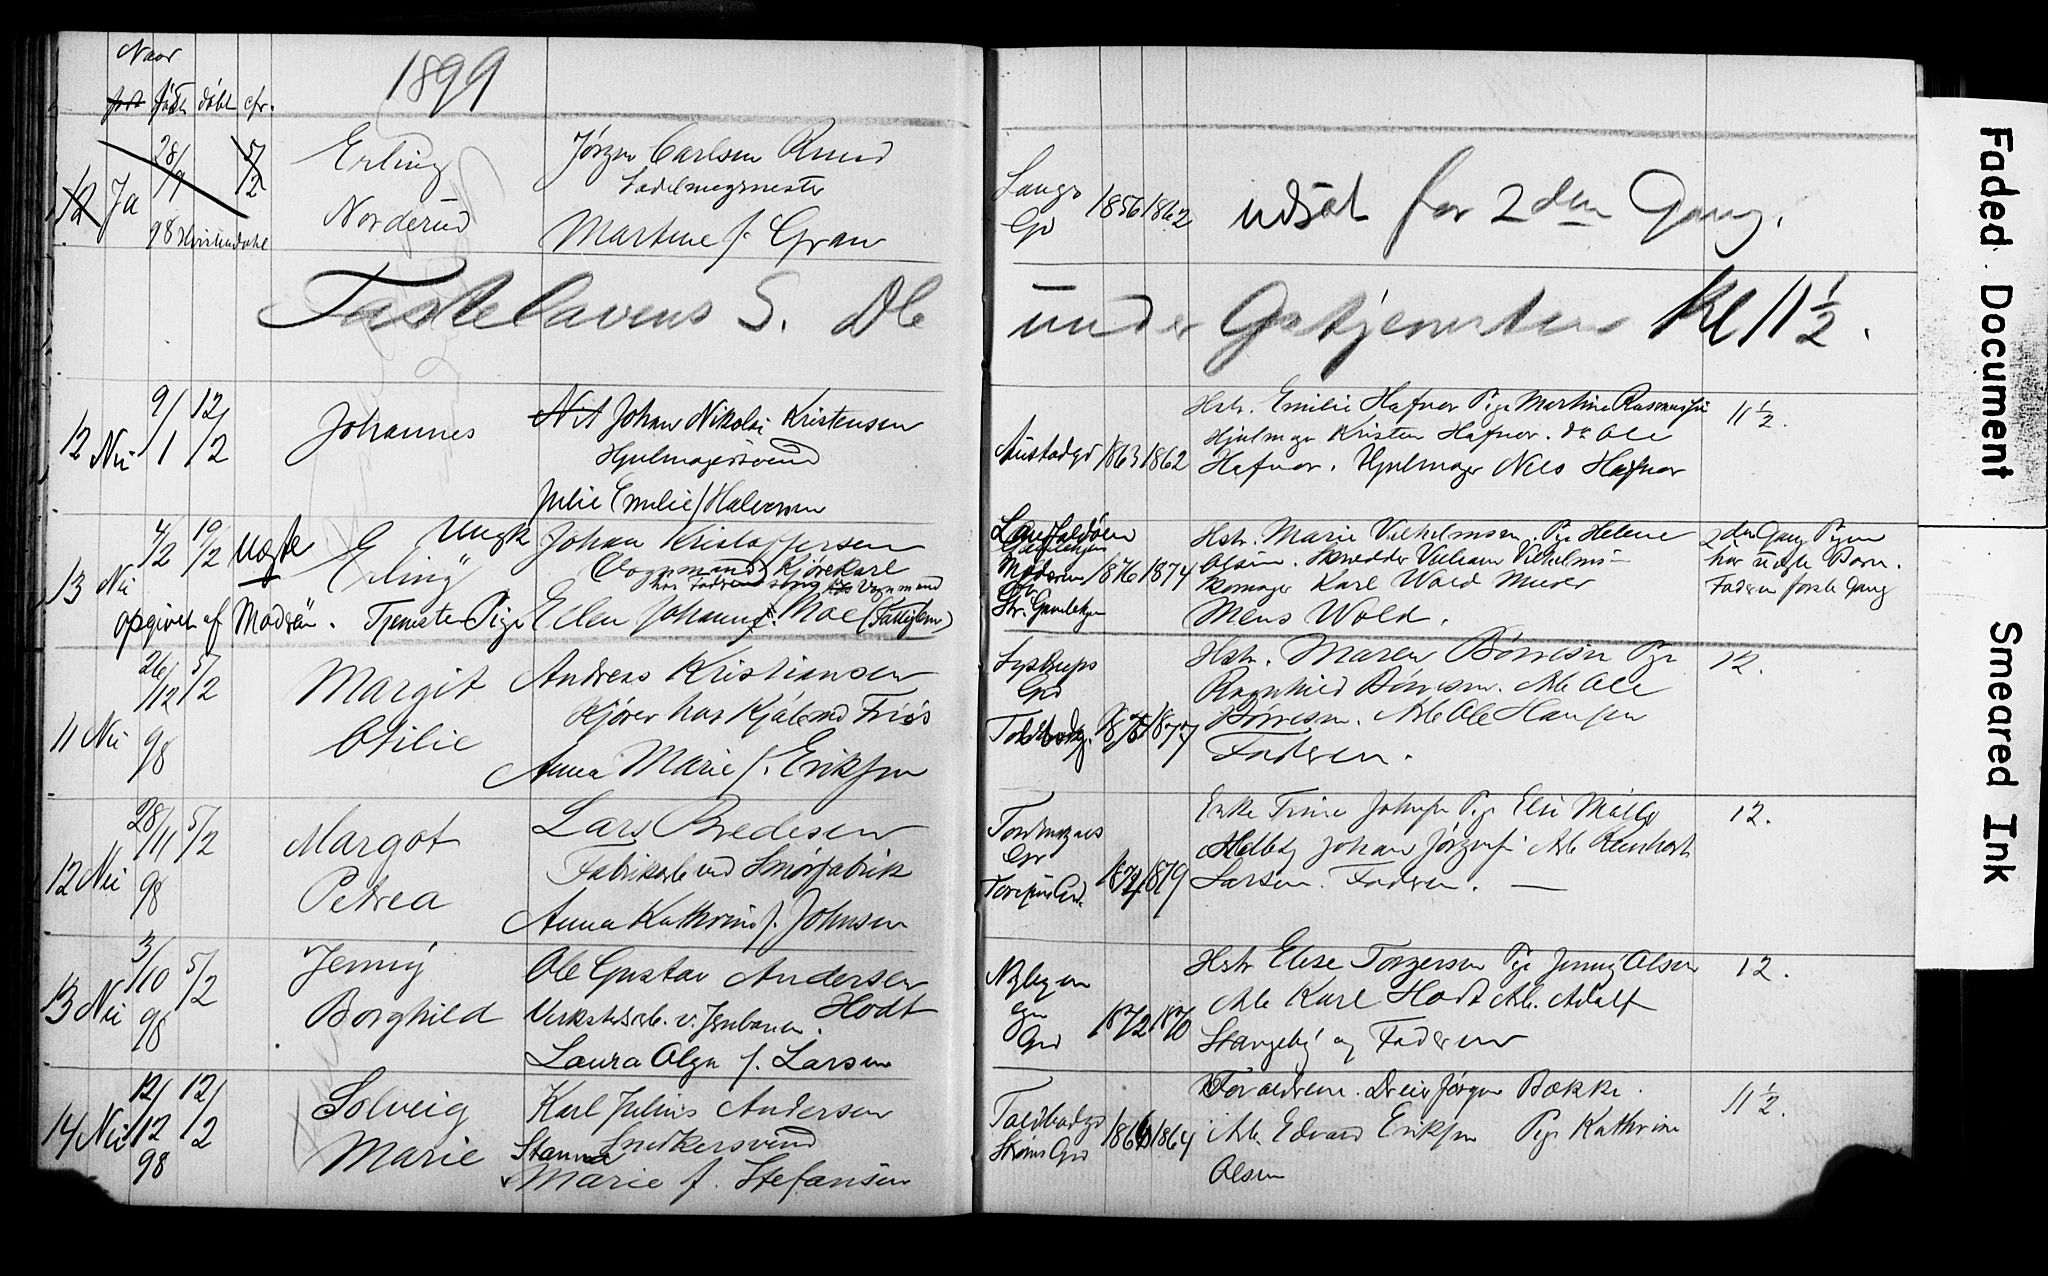 Naar
født døbt
1899
12 Ja 28/9 98 5/2
Erling
Norderud
Jörgen Carlsen Ruud
Sadelmagrmester
Martine f. Gran
Langs Gd 1856 1862
udsat for 2den Gang.
Fastelavens S. Db
under Gstjenesten Kl 11 1/2.
12 Nei 9/1 12/2
Johannes
Johan Nikolai Kristensen
Hjulmagersvend
Julie Emilie f Halvorsen
1863 1862
Hstr. Emilie Hafnor Pige Martine Rasmussen
Hjulmgr Kristen Hafnor. do Ole
Hafnor. Hjulmager Nils Hafnor
11 1/2.
13 Nei 4/2 19/2 Uægte
Erling
Ungk Johan Kristoffersen
Vognmand Kjørekarl
hos Faderens Vognmand
opgivet af Moderen. Tjeneste Pige Ellen Johanne Moe
Moderen
1876 1874
Hstr. Marie Vilhelmsen. Pige Helene
Olsen. Skrædder Vilhelms-
Skomager Karl Wold Murer
Mens Wold.
2den Gang Pigen
har uægte Barn.
Faderen første Gang
11 Nei 26/12 98 5/2
Margit
Otilie
Andreas Kristiansen
Kjører hos Kjølsmd Friis
Anna Marie f. Eriksen
Lystrups
Gd
1877
Hstr. Maren Børresen Pige
Ragnhild Børresen. Arb Ole
Børresen. Arb Ole Hansen
Faderen.
12.
12 Nei 28/11 98 5/2
Margot
Petrea
Lars Bredesen
Fabrikarb ved Smørfabrik
Anna Kathrine f. Johnsen
Gd
1874 1879
Enke Trine Johnsen Pige Else
Johan Jörgens. Arb Reinhart
Larsen. Faderen. —
12.
13 Nei 3/10 98 5/2
Jenny
Borghild
Ole Gustav Andersen
Hodt
Verkstedsarb. v. Jernbanen.
Laura Olga f. Larsen
Nybyen
Gd
1872 1870
Hstr Elise Torgersen Pige Jenny Olsen
Arb Karl Hodt Arb. Adolf
Stangeby og Faderen
12.
14 Nei 12/12 98 12/2
Solveig
Marie
Karl Julius Andersen
Snedkersvend
Marie f. Stefansen
Toldbodgd
Strøms Gd
1866 1864
Forældrene. Dreier Jørgen Bakke.
Arb. Edvard Eriksen Pige Kathrine
Olsen
11 1/2.
Faded Document
Smeared Ink